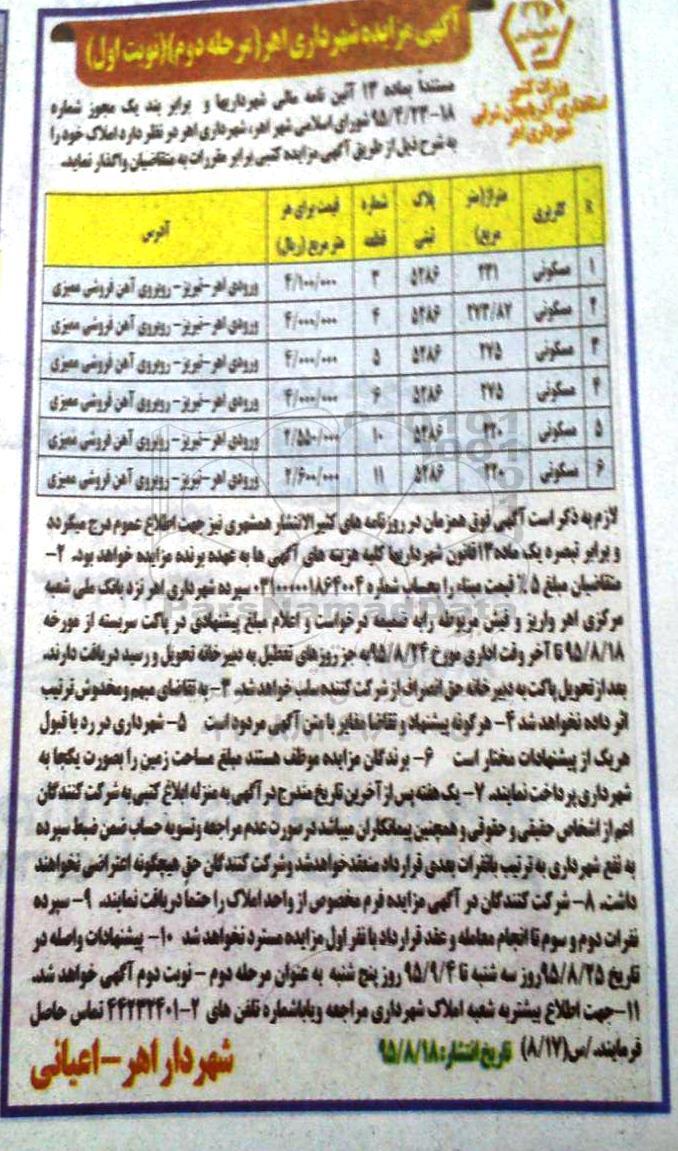 آگهی مزایده شهرداری اهر(مرحله دوم)(نوبت اول)
وزرات کشور
استانداری آذربایجان شرقی
شهرداری اهر
مستنداً بماده ۱۳ آئین نامه مالی شهرداریها و برابر بند یک مجوز شماره
۱۸-۹۵/۴/۲۳ شورای اسلامی شهر اهر، شهرداری اهر در نظر دارد املاک خود را
به شرح ذیل از طریق آگهی مزایده کتبی برابر مقررات به متقاضیان واگذار نماید.
R کاربری متراژ(متر مربع) پلاک ثبتی شماره قطعه قیمت برای هر متر مربع (ریال) آدرس
۱ مسکونی ۲۳۱ ۵۲۸۶ ۳ ۴/۱۰۰/۰۰۰ ورودی اهر-تبریز- روبروی آهن فروشی ممیزی
۲ مسکونی ۲۷۳/۸۷ ۵۲۸۶ ۴ ۴/۰۰۰/۰۰۰ ورودی اهر-تبریز- روبروی آهن فروشی ممیزی
۳ مسکونی ۲۷۵ ۵۲۸۶ ۵ ۴/۰۰۰/۰۰۰ ورودی اهر-تبریز- روبروی آهن فروشی ممیزی
۴ مسکونی ۲۷۵ ۵۲۸۶ ۶ ۴/۰۰۰/۰۰۰ ورودی اهر-تبریز- روبروی آهن فروشی ممیزی
۵ مسکونی ۲۲۰ ۵۲۸۶ ۱۰ ۲/۵۵۰/۰۰۰ ورودی اهر-تبریز- روبروی آهن فروشی ممیزی
۶ مسکونی ۲۲۰ ۵۲۸۶ ۱۱ ۲/۶۰۰/۰۰۰ ورودی اهر-تبریز- روبروی آهن فروشی ممیزی
لازم به ذکر است آگهی فوق همزمان در روزنامه های کثیرالانتشار همشهری نیز جهت اطلاع عموم درج میگردد
و برابر تبصره یک ماده ۱۳ قانون شهرداریها کلیه هزینه های آگهی ها به عهده برنده مزایده خواهد بود. ۲-
متقاضیان مبلغ ۵٪ قیمت مبناء را بحساب شماره ۰۳۱۰۰۰۰۰۰۱۸۶۴۰۰۴ سپرده شهرداری اهر نزد بانک ملی شعبه
مرکزی اهر واریز و فیش مربوطه رابه ضمیمه درخواست و اعلام مبلغ پیشنهادی در پاکت سربسته از مورخه
۹۵/۸/۱۸ تا آخر وقت اداری مورخ ۹۵/۸/۲۴ به جز روزهای تعطیل به دبیرخانه تحویل و رسید دریافت دارند.
بعد از تحویل پاکت به دبیرخانه حق انصراف از شرکت کننده سلب خواهد شد. ۳- به تقاضای مبهم و مخدوش ترتیب
اثر داده نخواهد شد ۴- هرگونه پیشنهاد و تقاضا مغایر با متن آگهی مردود است ۵- شهرداری در رد یا قبول
هریک از پیشنهادات مختار است ۶- برندگان مزایده موظف هستند مبلغ مساحت زمین را بصورت یکجا به
شهرداری پرداخت نمایند. ۷- یک هفته پس از آخرین تاریخ مندرج در آگهی به منزله ابلاغ کتبی به شرکت کنندگان
اعم از اشخاص حقیقی و حقوقی و همچنین پیمانکاران میباشد در صورت عدم مراجعه و تسویه حساب ضمن ضبط سپرده
به نفع شهرداری به ترتیب بانفرات بعدی قرارداد منعقد خواهد شد وشرکت کنندگان حق هیچگونه اعتراضی نخواهند
داشت. ۸- شرکت کنندگان در آگهی مزایده فرم مخصوص از واحد املاک را حتماً دریافت نمایند. ۹- سپرده
نفرات دوم و سوم تا انجام معامله و عقد قرارداد با نفر اول مزایده مسترد نخواهد شد ۱۰- پیشنهادات واصله در
تاریخ ۹۵/۸/۲۵ روز سه شنبه تا ۹۵/۹/۴ روز پنج شنبه به عنوان مرحله دوم - نوبت دوم آگهی خواهد شد.
۱۱-جهت اطلاع بیشتر به شعبه املاک شهرداری مراجعه ویاباشماره تلفن های ۲-۴۴۲۳۲۴۰۱ تماس حاصل
فرمایند. /س(۸/۱۷) تاریخ انتشار: ۹۵/۸/۱۸
شهردار اهر-اعیانی
ParsNamadData